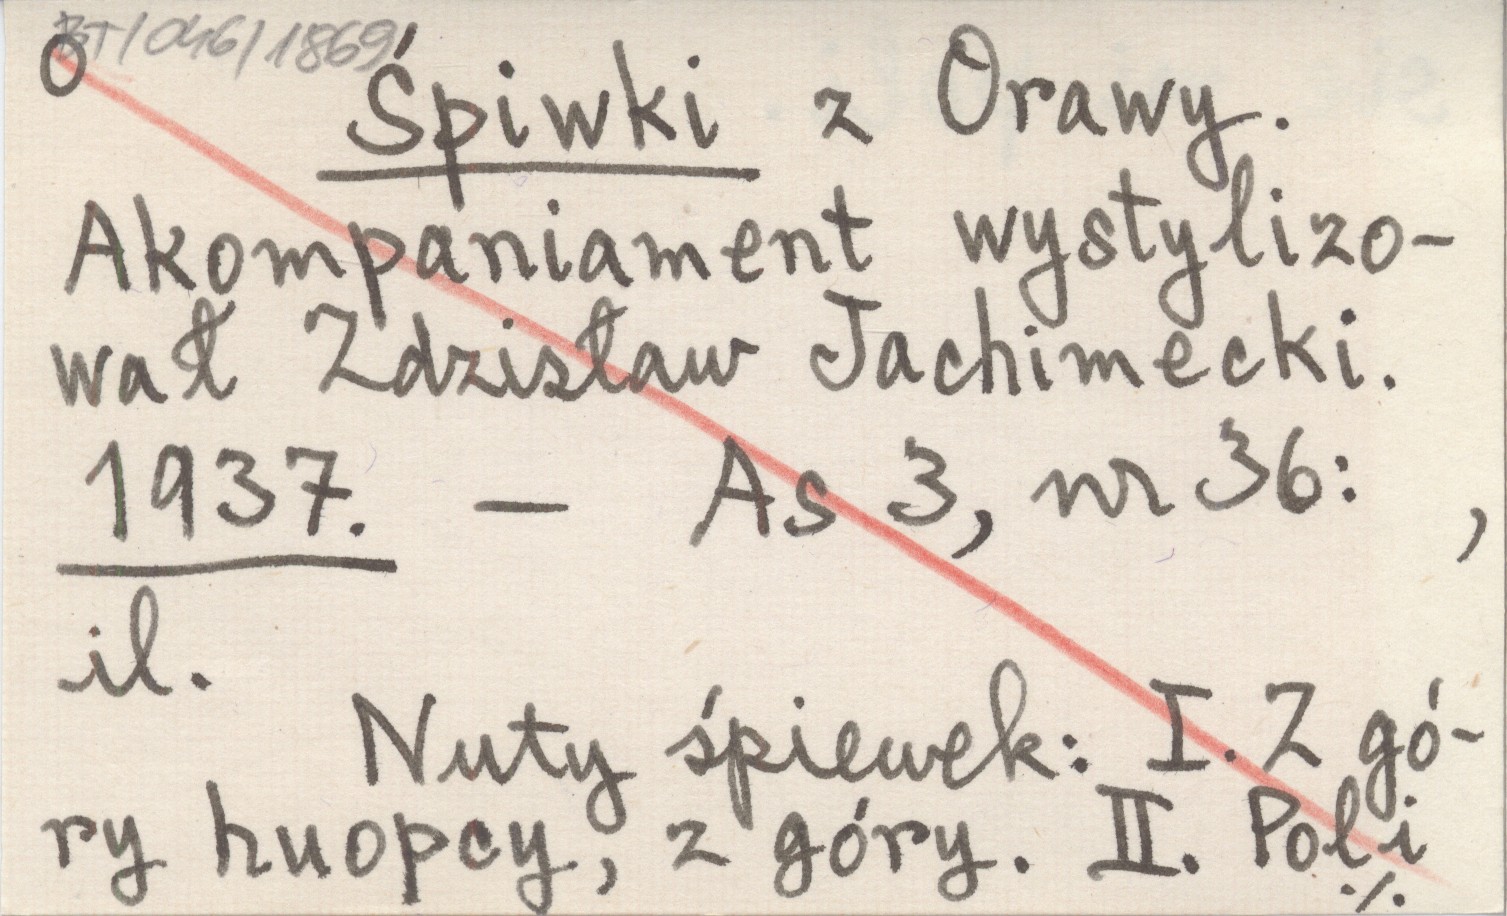 BT/046/1869
O
Śpiwki z Orawy.
Akompaniament wystylizo-
wał Zdzisław Jachimecki.
1937. — As 3, nr 36: ,
il.
Nuty śpiewek: I. Z gó-
ry huopcy, z góry. II. Poli
./.